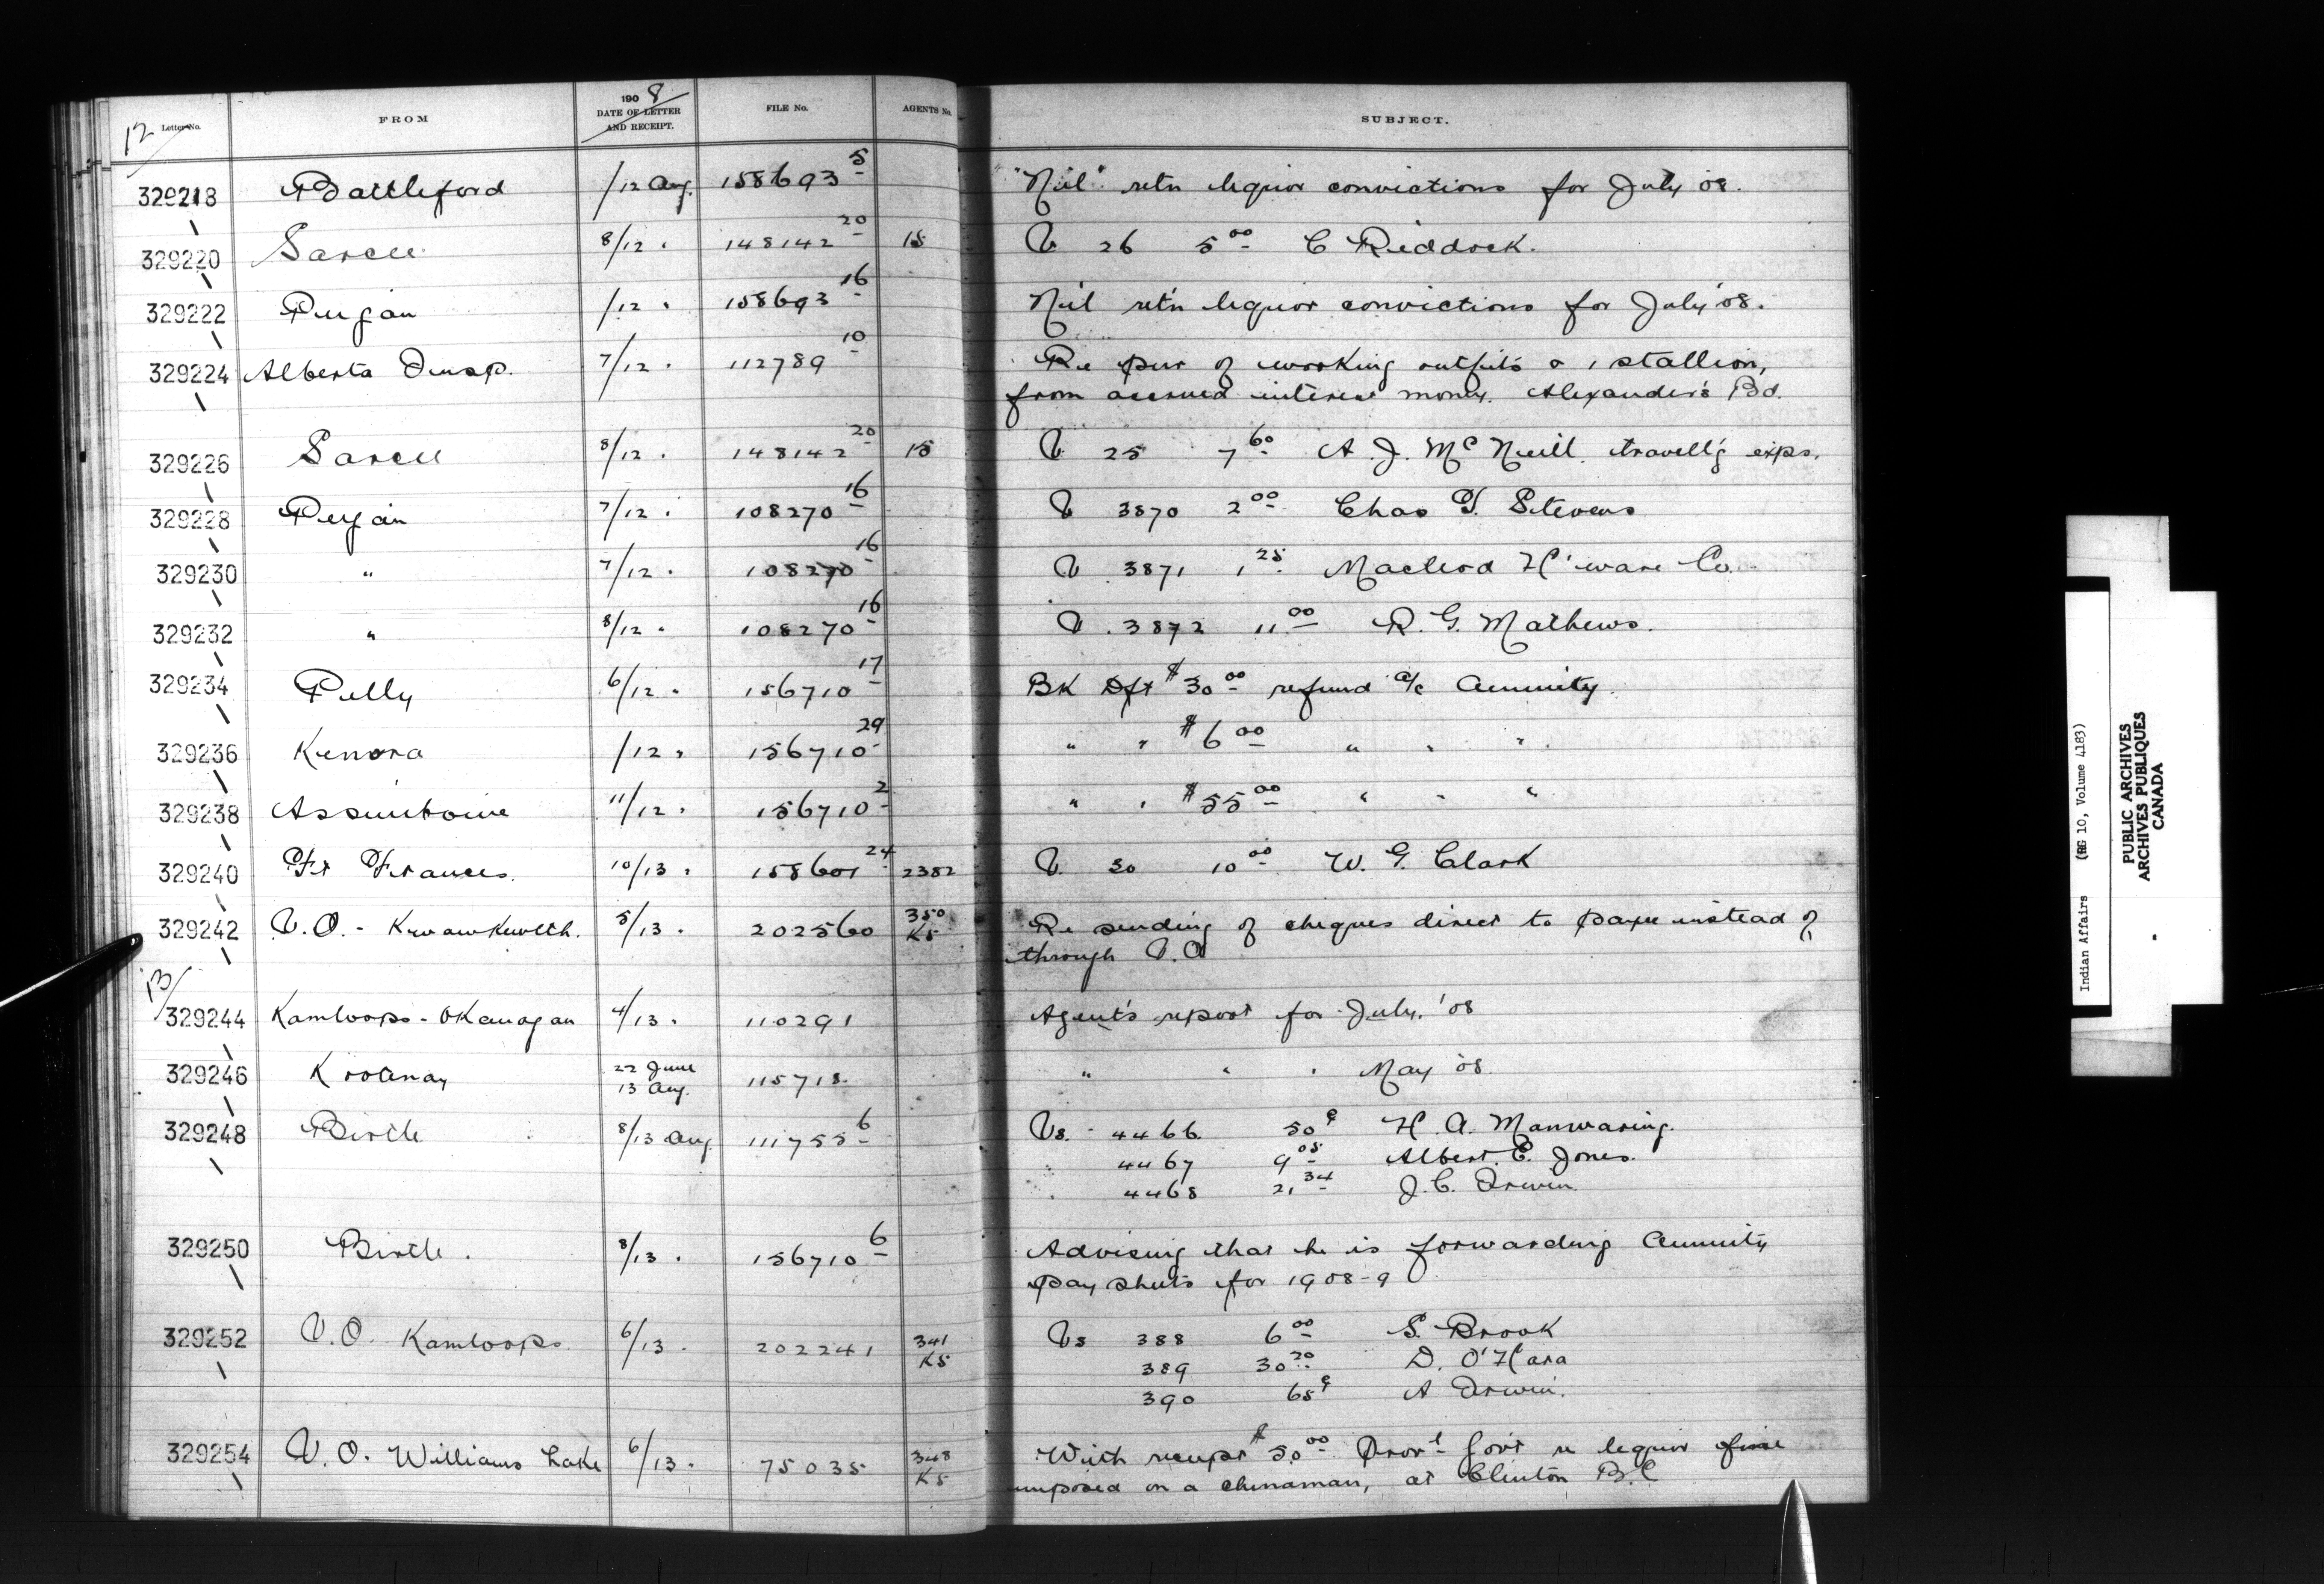 12 Letter No. FROM 1908 DATE OF LETTER AND RECEIPT. FILE No. AGENTS No. SUBJECT.
329218 Battleford /12 Aug. 158693 5 "Nil" retn liquor convictions for July '08.
329220 Sarcee 8/12 " 148142 20 15 V 26 5 00 C Riddock.
329222 Peigan /12 " 158693 16 Nil ret'n liquor convictions for July '08.
329224 Alberta Insp. 7/12 " 112789 10 Re pur of working outfits & 1 stallion,
from accrued interest money. Alexander's Bd.
329226 Sarcee 8/12 " 148142 20 15 V 25 7 60 A. J. McNeill travell'g exps.
329228 Peigan 7/12 " 108270 16 V 3870 2 00 Chas T. Stevens
329230 " 7/12 " 108270 16 V 3871 1 25 Macleod H'ware Co.
329232 " 8/12 " 108270 16 V 3872 11 00 R. G. Mathews.
329234 Pelly 6/12 " 156710 17 Bk Dft $30 00 refund a/c Annuity.
329236 Kenora /12 " 156710 29 " " $6 00 " " "
329238 Assiniboine 11/12 " 156710 2 " " $55 00 " " "
329240 Ft Frances. 10/13 " 158601 24 2382 V 30 10 00 W. G. Clark
329242 V.O. - Kwawkewlth. 5/13 " 202560 350 K5 Re sending of cheques direct to payee instead of
through V.O
13/
329244 Kamloops - Okanagan 4/13 " 110291 Agent's report for July, '08
329246 Kootenay 22 June 13 Aug. 115718 " " " May '08.
329248 Birtle 8/13 Aug 111755 6 Vs. 4466 50¢ H. A. Manwaring.
" 4467 9 05 Albert E. Jones.
" 4468 21 34 J. C. Irwin
329250 Birtle. 8/13 " 156710 6 Advising that he is forwarding Annuity
pay sheets for 1908-9
329252 V.O. Kamloops. 6/13 " 202241 341 K5 Vs 388 6 00 S. Brook
389 30 20 D. O'Hara
390 65¢ A Irwin.
329254 V.O. Williams Lake 6/13 " 75035 348 K5 With receipt $50 00 Prov'l Gov't re liquor fine
imposed on a chinaman, at Clinton B.C
Indian Affairs (RG 10, Volume 4183)
PUBLIC ARCHIVES
ARCHIVES PUBLIQUES
CANADA